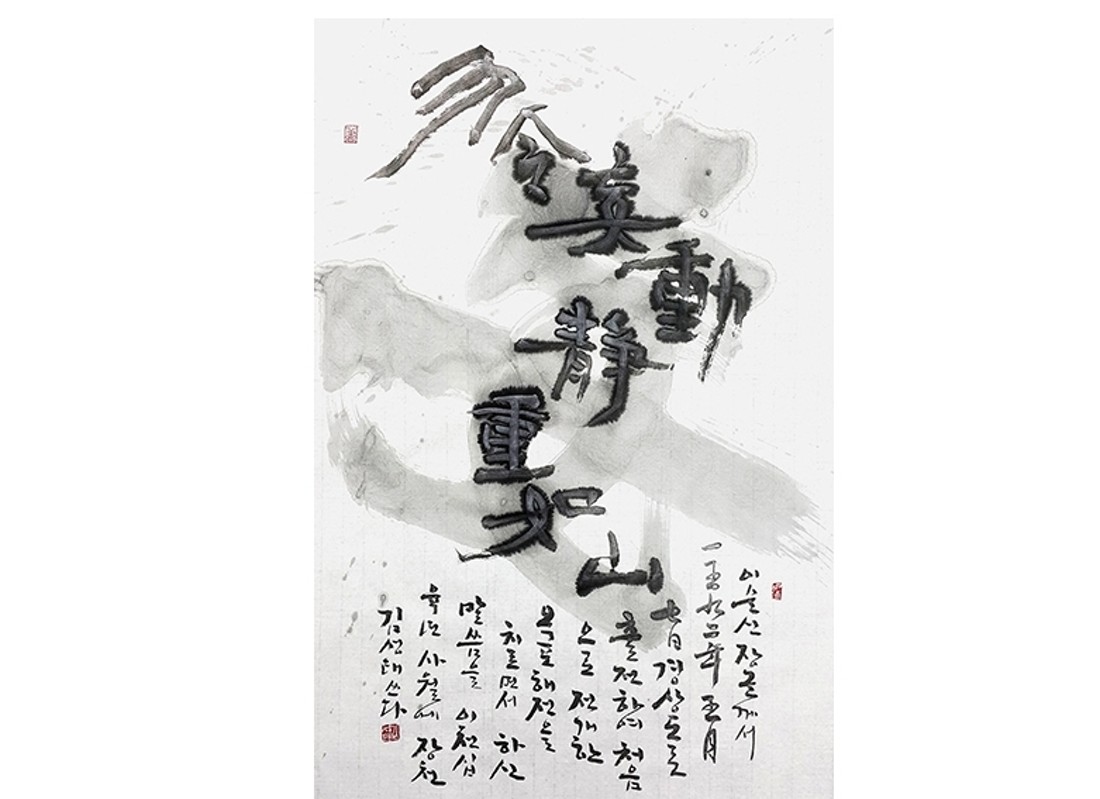 勿令妄動
靜重如山
이순신 장군께서
一五九二年 五月
七日 경상도로
출전하여 처음
으로 전개한
옥포해전을
치르면서 하신
말씀을 이천십
육년 사월에 장천
김선태 쓰다